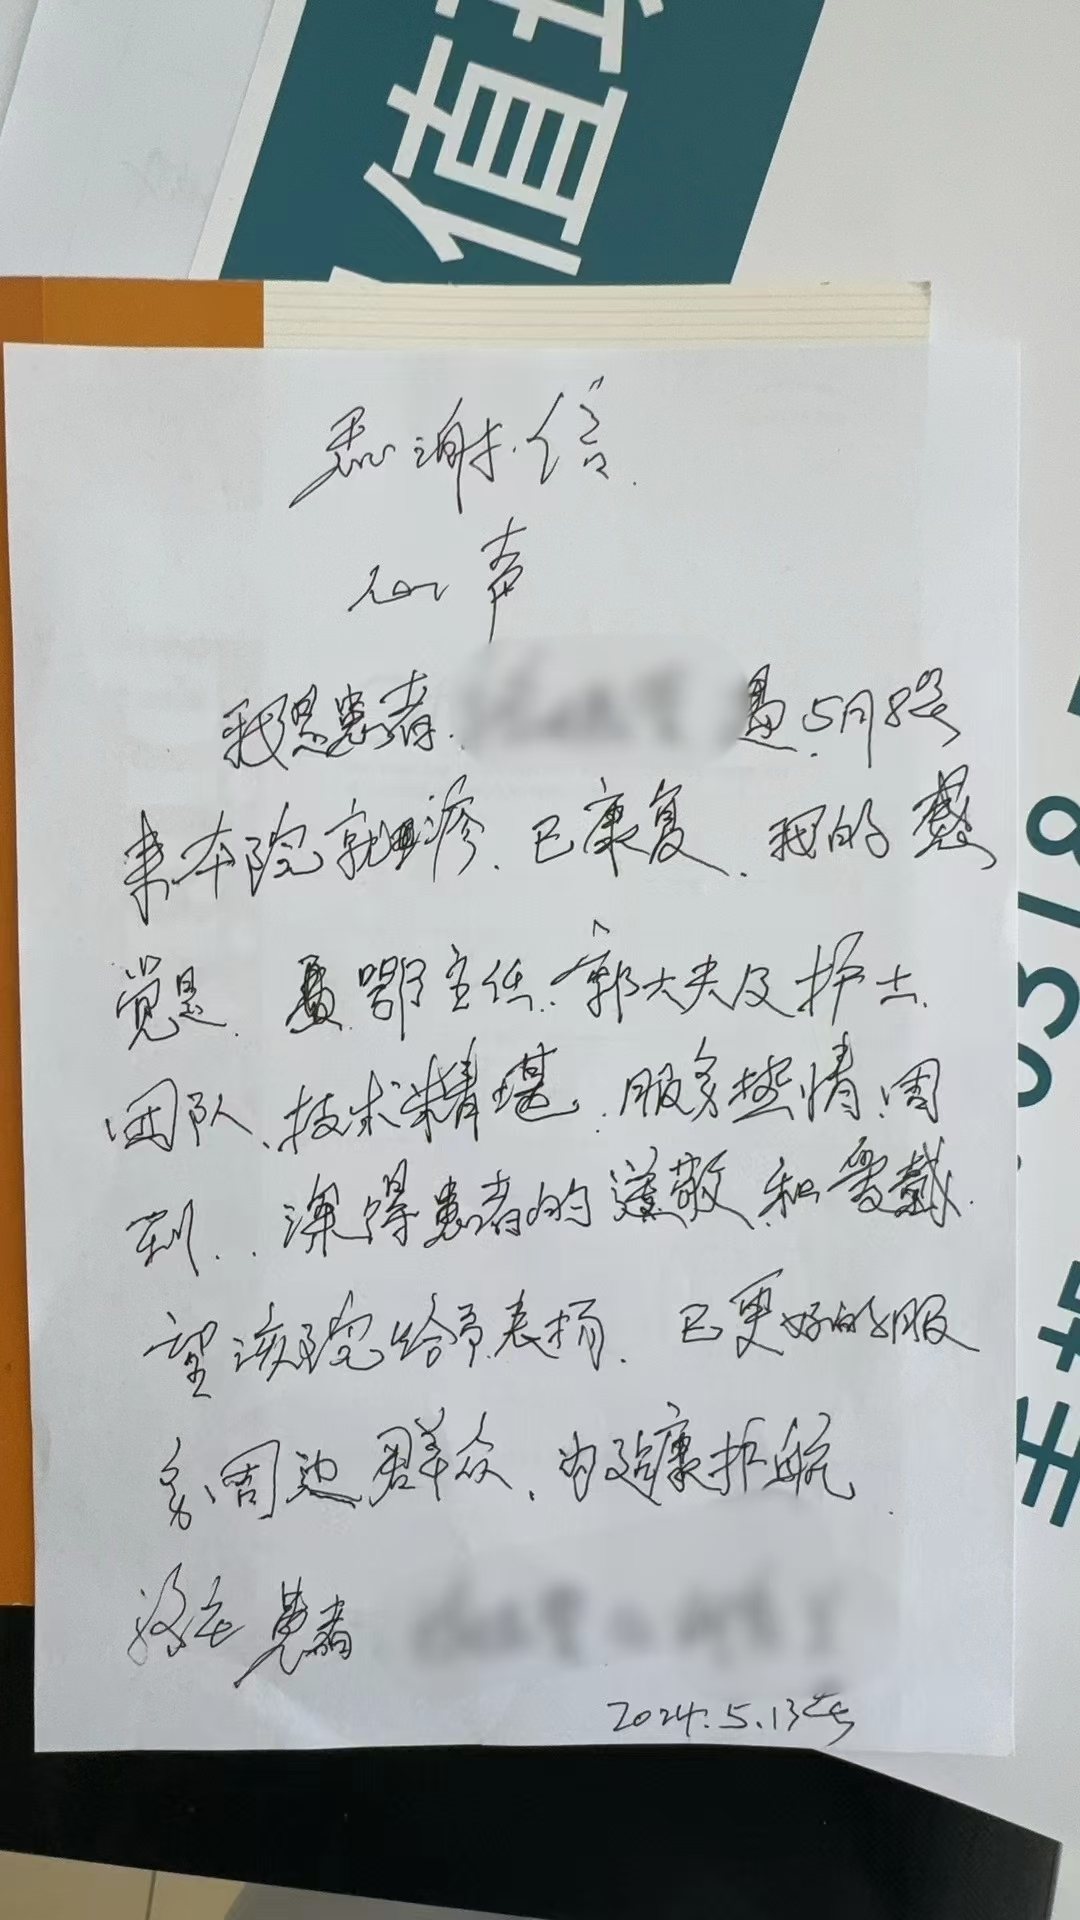 值
感谢信.
心声
我是患者. 5月8号
来本院就诊、已康复、我的感
觉是. 鄂主任、郭大夫及护士、
团队、技术精堪、服务热情、周
到.. 深得患者的 敬和爱戴.
望该院给予表扬. 已更好的服
务、周边群众、为健康护航.
患者
2024.5.13号